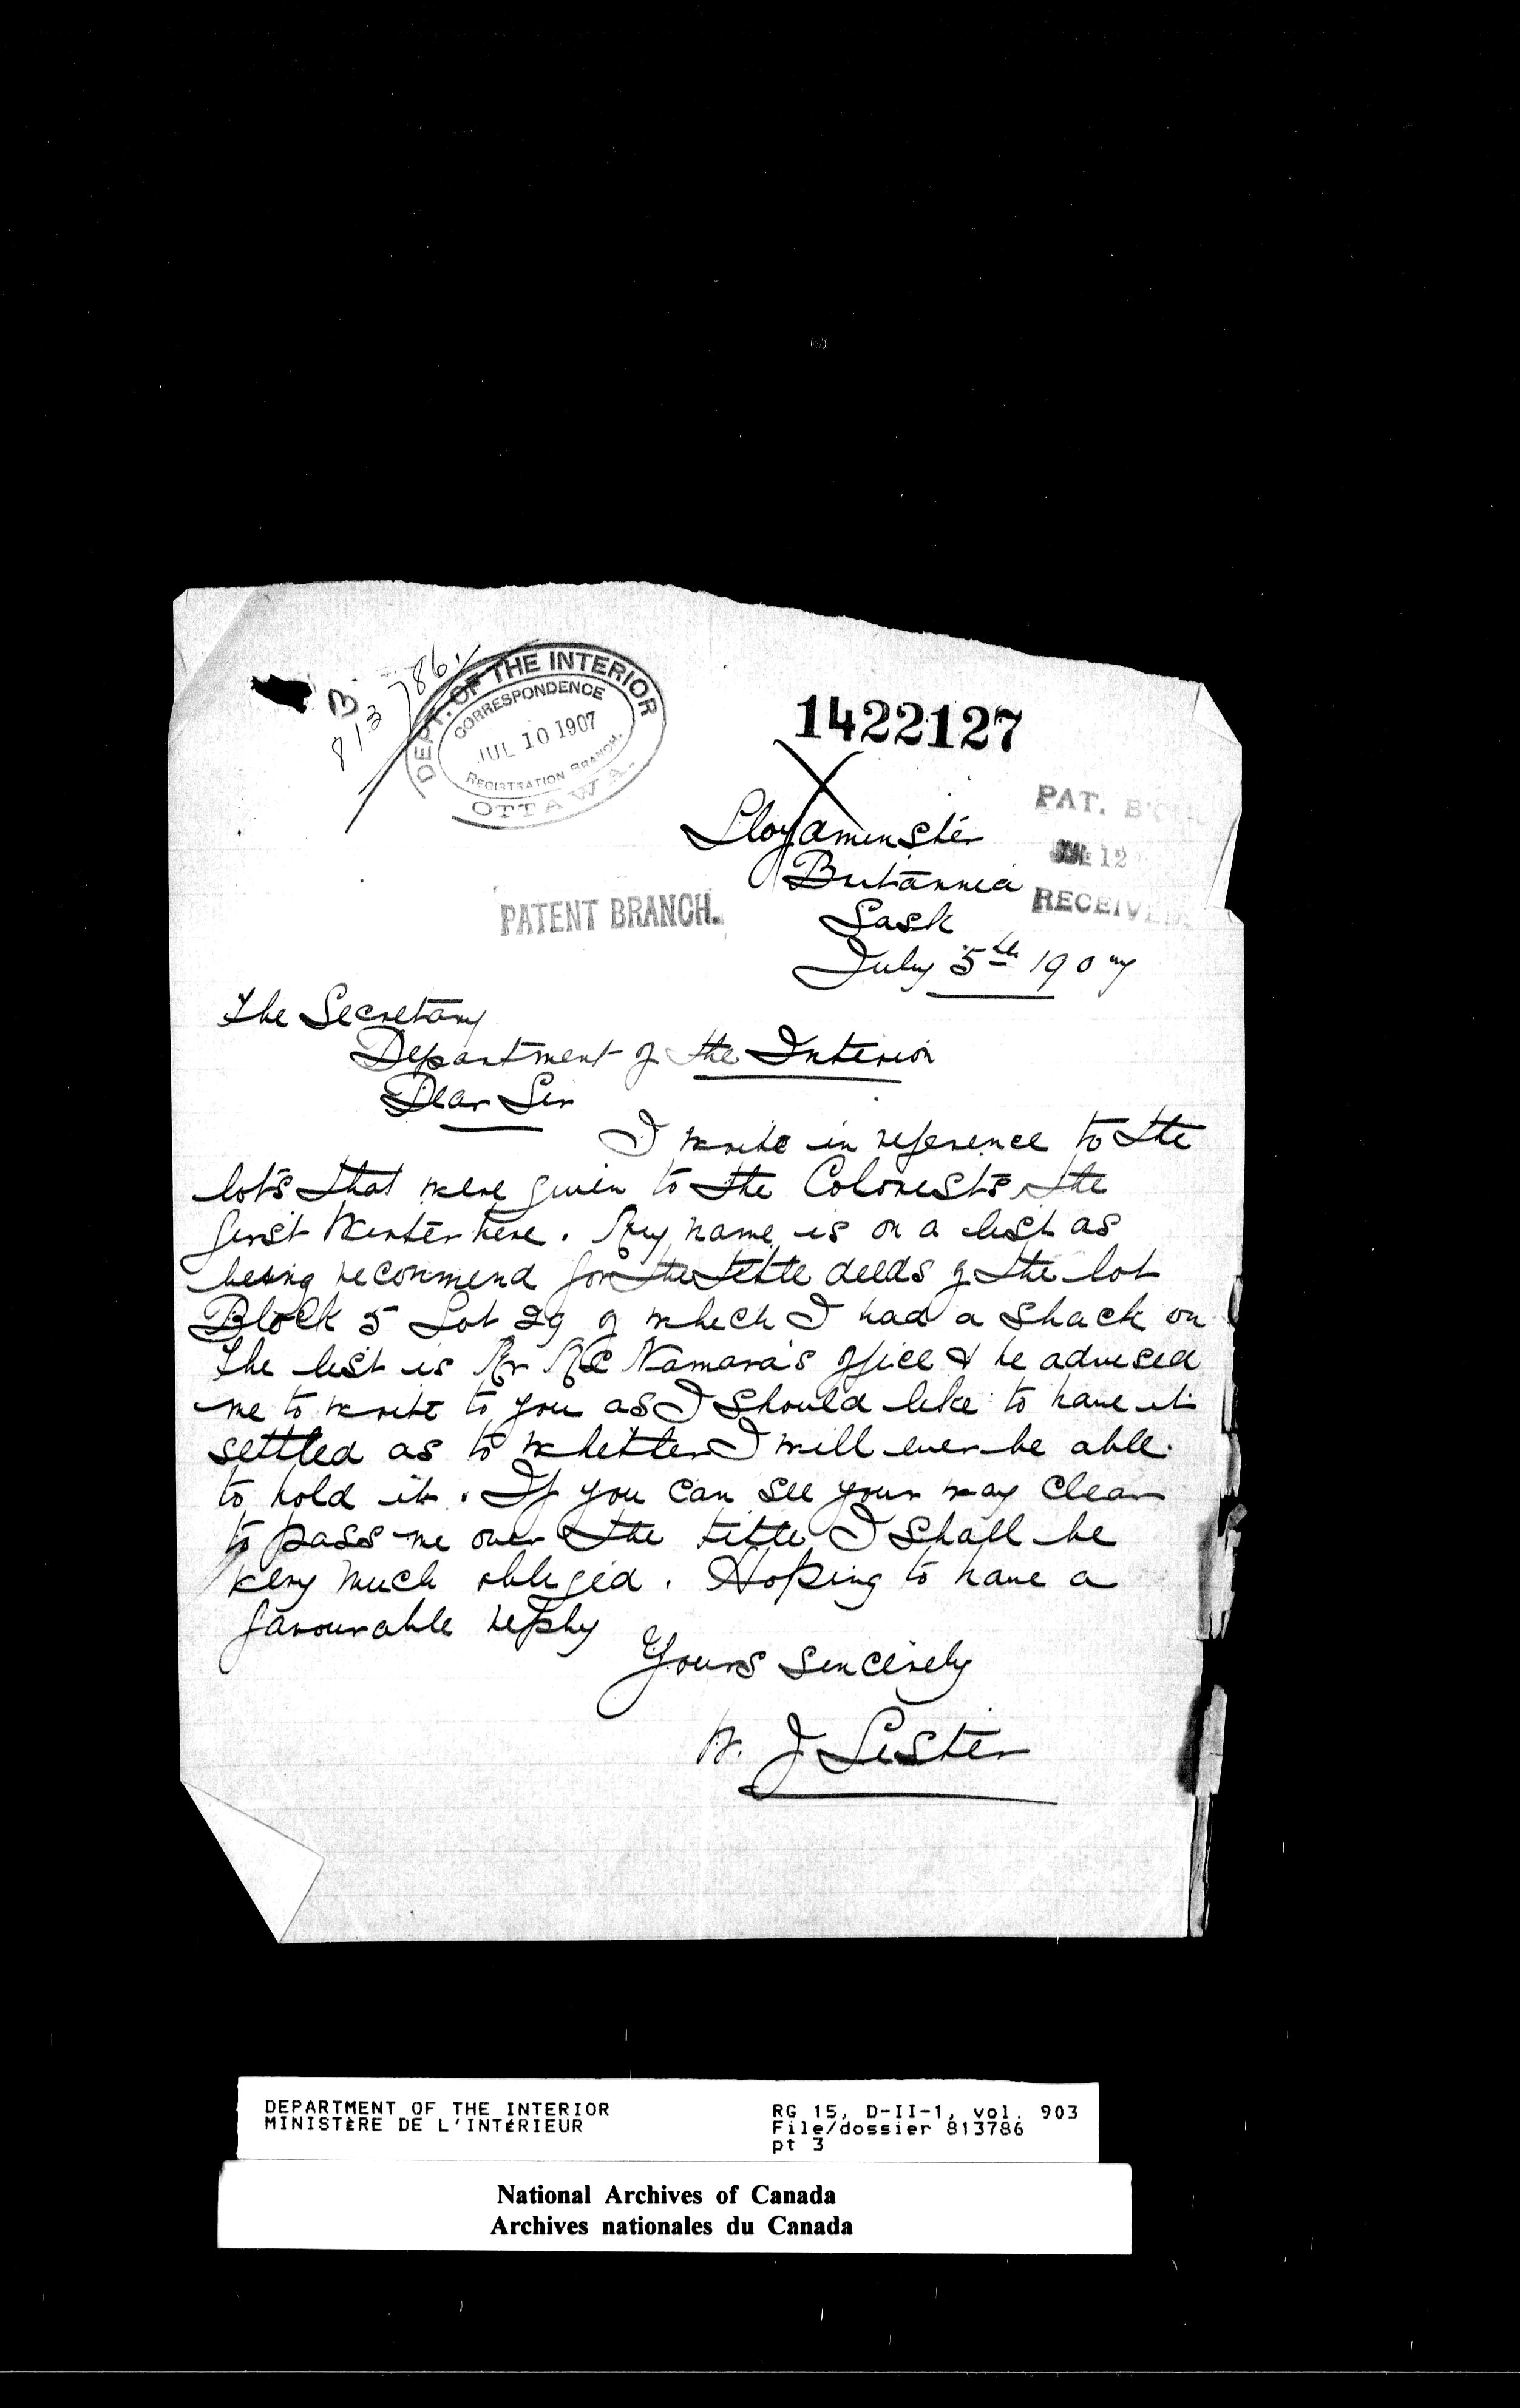 B.
813786
DEPT. OF THE INTERIOR
CORRESPONDENCE
JUL 10 1907
REGISTRATION BRANCH.
OTTAWA.
1422127
PAT.
12
RECEIVED
PATENT BRANCH.
Lloydminster
Britannia
Sask
July 5th 1907
The Secretary
Department of the Interior
Dear Sir
I write in reference to the
lots that were given to the Colonests the
first Winter here. My name is on a list as
being recommend for the title deeds of the lot
Block 5 Lot 29 of which I had a shack on
The list is Mr Mc Namara's office & he advised
me to write to you as I should like to have it
settled as to whether I will ever be able
to hold it. If you can see your way clear
to pass me over the title I shall be
very much obliged. Hoping to have a
favourable reply
Yours sincerely
W. J Lester
DEPARTMENT OF THE INTERIOR
MINISTÈRE DE L'INTÉRIEUR
RG 15, D-II-1, vol. 903
File/dossier 813786
pt 3
National Archives of Canada
Archives nationales du Canada